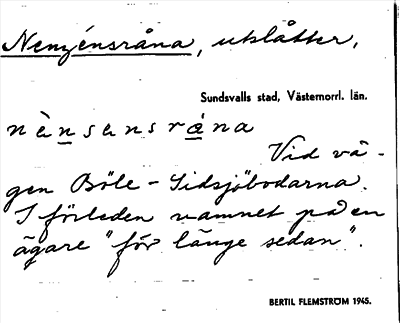 Nenzénsråna, utslåtter,
Sundsvalls stad, Västernorrl. län.
nènsens råna
Vid vä-
gen Böle - Sidsjöbodarna.
I förleden namnet på en
ägare "för länge sedan".
BERTIL FLEMSTRÖM 1945.